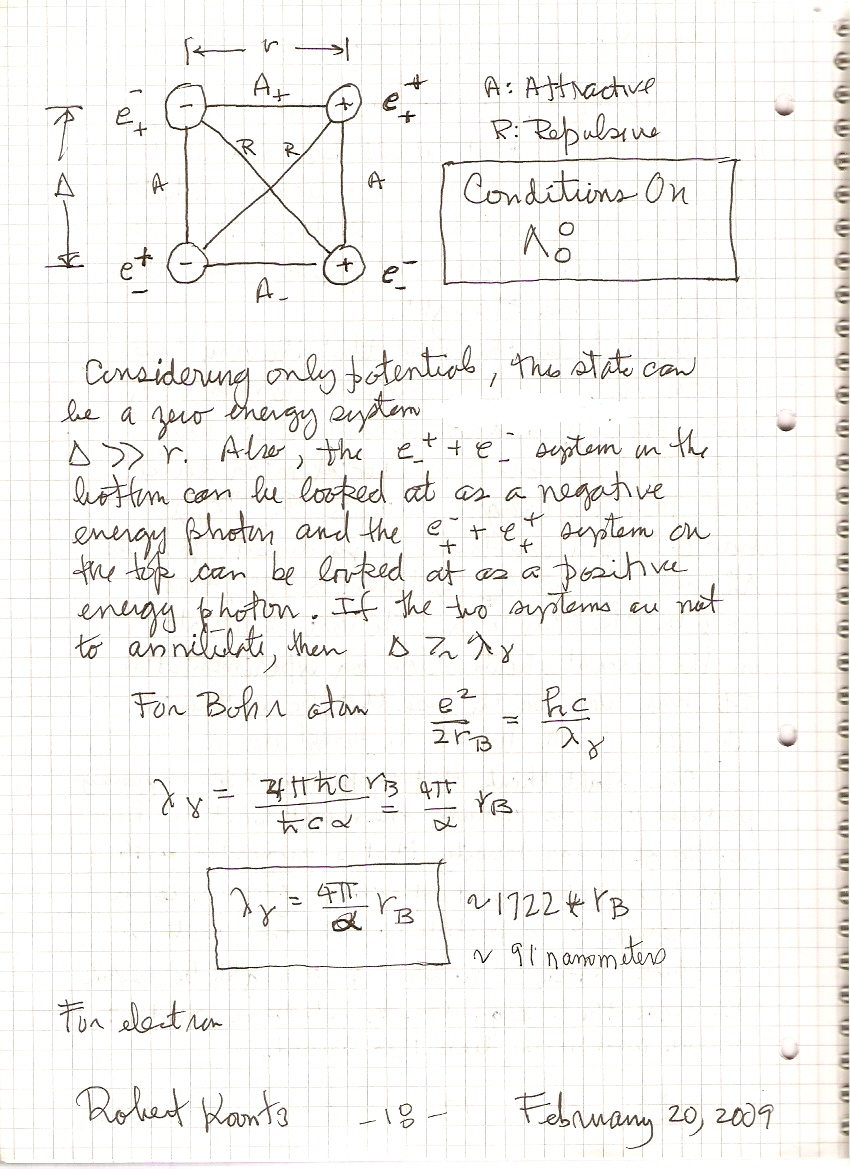 r
e₊⁻ - A₊ + e₊⁺
A: Attractive
R: Repulsive
Δ A R R A
Conditions On
Λ₀⁰
e₋⁺ - A₋ + e₋⁻
Considering only potentials, this state can
be a zero energy system
Δ >> r. Also, the e₋⁺ + e₋⁻ system on the
bottom can be looked at as a negative
energy photon and the e₊⁻ + e₊⁺ system on
the top can be looked at as a positive
energy photon. If the two systems are not
to annililate, then Δ ≳ λγ
For Bohr atom e²/2r_B = hc/λγ
λγ = 4πħc r_B/ħcα = 4π/α r_B
λγ = 4π/α r_B ~1722 * r_B
~ 91 nanometers
For electron
Robert Koontz -18- February 20, 2009